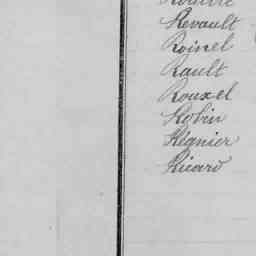 Revault
Roinel
Rault
Rouxel
Robin
Régnier
Ricard